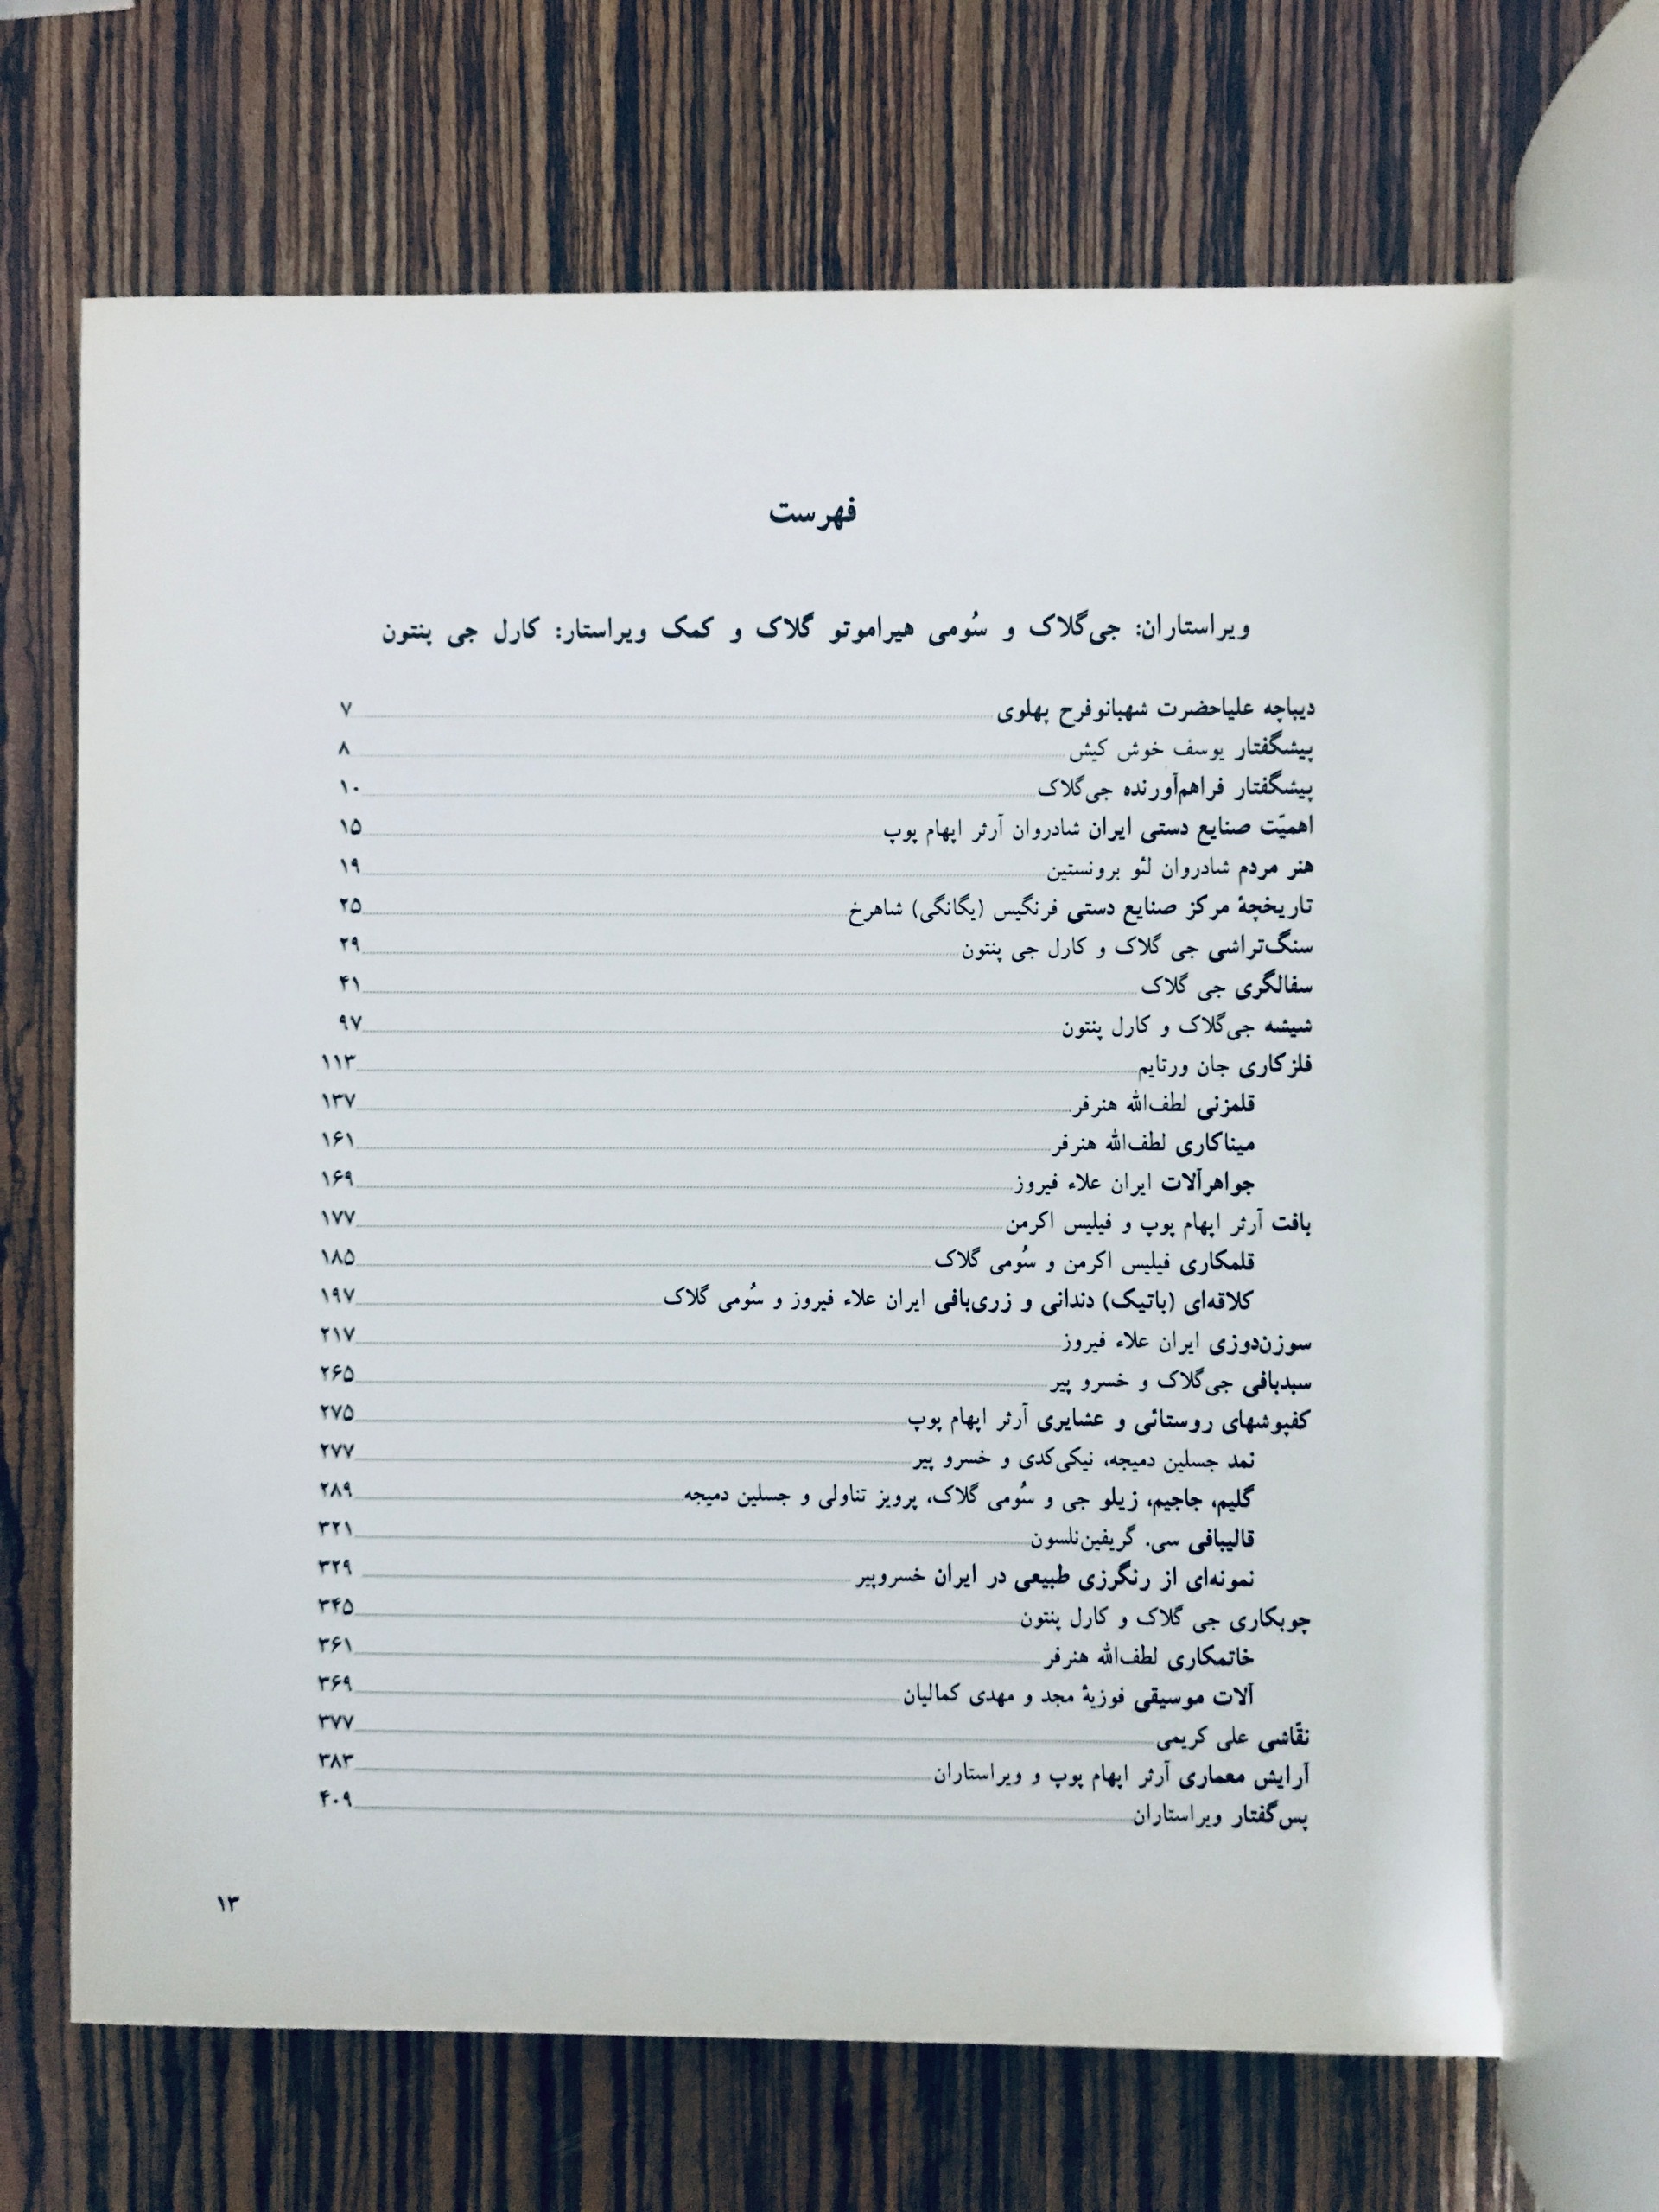 فهرست
ویراستاران: جی‌گلاک و سُومی هیراموتو گلاک و کمک ویراستار: کارل جی پنتون
دیباچه علیاحضرت شهبانوفرح پهلوی ۷
پیشگفتار یوسف خوش کیش ۸
پیشگفتار فراهم‌آورنده جی‌گلاک ۱۰
اهمیّت صنایع دستی ایران شادروان آرثر اپهام پوپ ۱۵
هنر مردم شادروان لئو برونستین ۱۹
تاریخچهٔ مرکز صنایع دستی فرنگیس (یگانگی) شاهرخ ۲۵
سنگ‌تراشی جی گلاک و کارل جی پنتون ۲۹
سفالگری جی گلاک ۴۱
شیشه جی‌گلاک و کارل پنتون ۹۷
فلزکاری جان ورتایم ۱۱۳
قلمزنی لطف‌الله هنرفر ۱۳۷
میناکاری لطف‌الله هنرفر ۱۶۱
جواهرآلات ایران علاء فیروز ۱۶۹
بافت آرثر اپهام پوپ و فیلیس اکرمن ۱۷۷
قلمکاری فیلیس اکرمن و سُومی گلاک ۱۸۵
کلاقه‌ای (باتیک) دندانی و زری‌بافی ایران علاء فیروز و سُومی گلاک ۱۹۷
سوزن‌دوزی ایران علاء فیروز ۲۱۷
سبدبافی جی‌گلاک و خسرو پیر ۲۶۵
کفپوشهای روستائی و عشایری آرثر اپهام پوپ ۲۷۵
نمد جسلین دمیجه، نیکی‌کدی و خسرو پیر ۲۷۷
گلیم، جاجیم، زیلو جی و سُومی گلاک، پرویز تناولی و جسلین دمیجه ۲۸۹
قالیبافی سی. گریفین‌نلسون ۳۲۱
نمونه‌ای از رنگرزی طبیعی در ایران خسروپیر ۳۲۹
چوبکاری جی گلاک و کارل پنتون ۳۴۵
خاتمکاری لطف‌الله هنرفر ۳۶۱
آلات موسیقی فوزیهٔ مجد و مهدی کمالیان ۳۶۹
نقّاشی علی کریمی ۳۷۷
آرایش معماری آرثر اپهام پوپ و ویراستاران ۳۸۳
پس‌گفتار ویراستاران ۴۰۹
۱۳